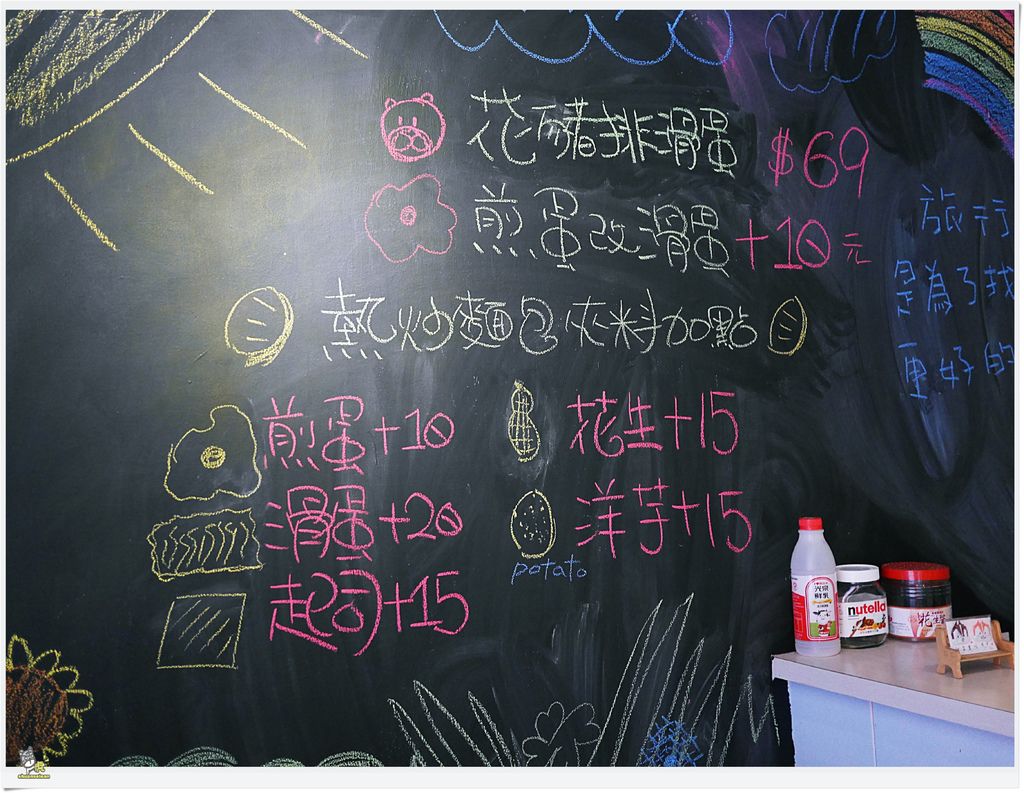 花豬排滑蛋 $69
煎蛋改滑蛋+10元
熱炒麵包夾料加點
煎蛋+10
滑蛋+20
起司+15
花生+15
洋芋+15
potato
旅行
是為了找
更好的
nutella
鮮乳
花生